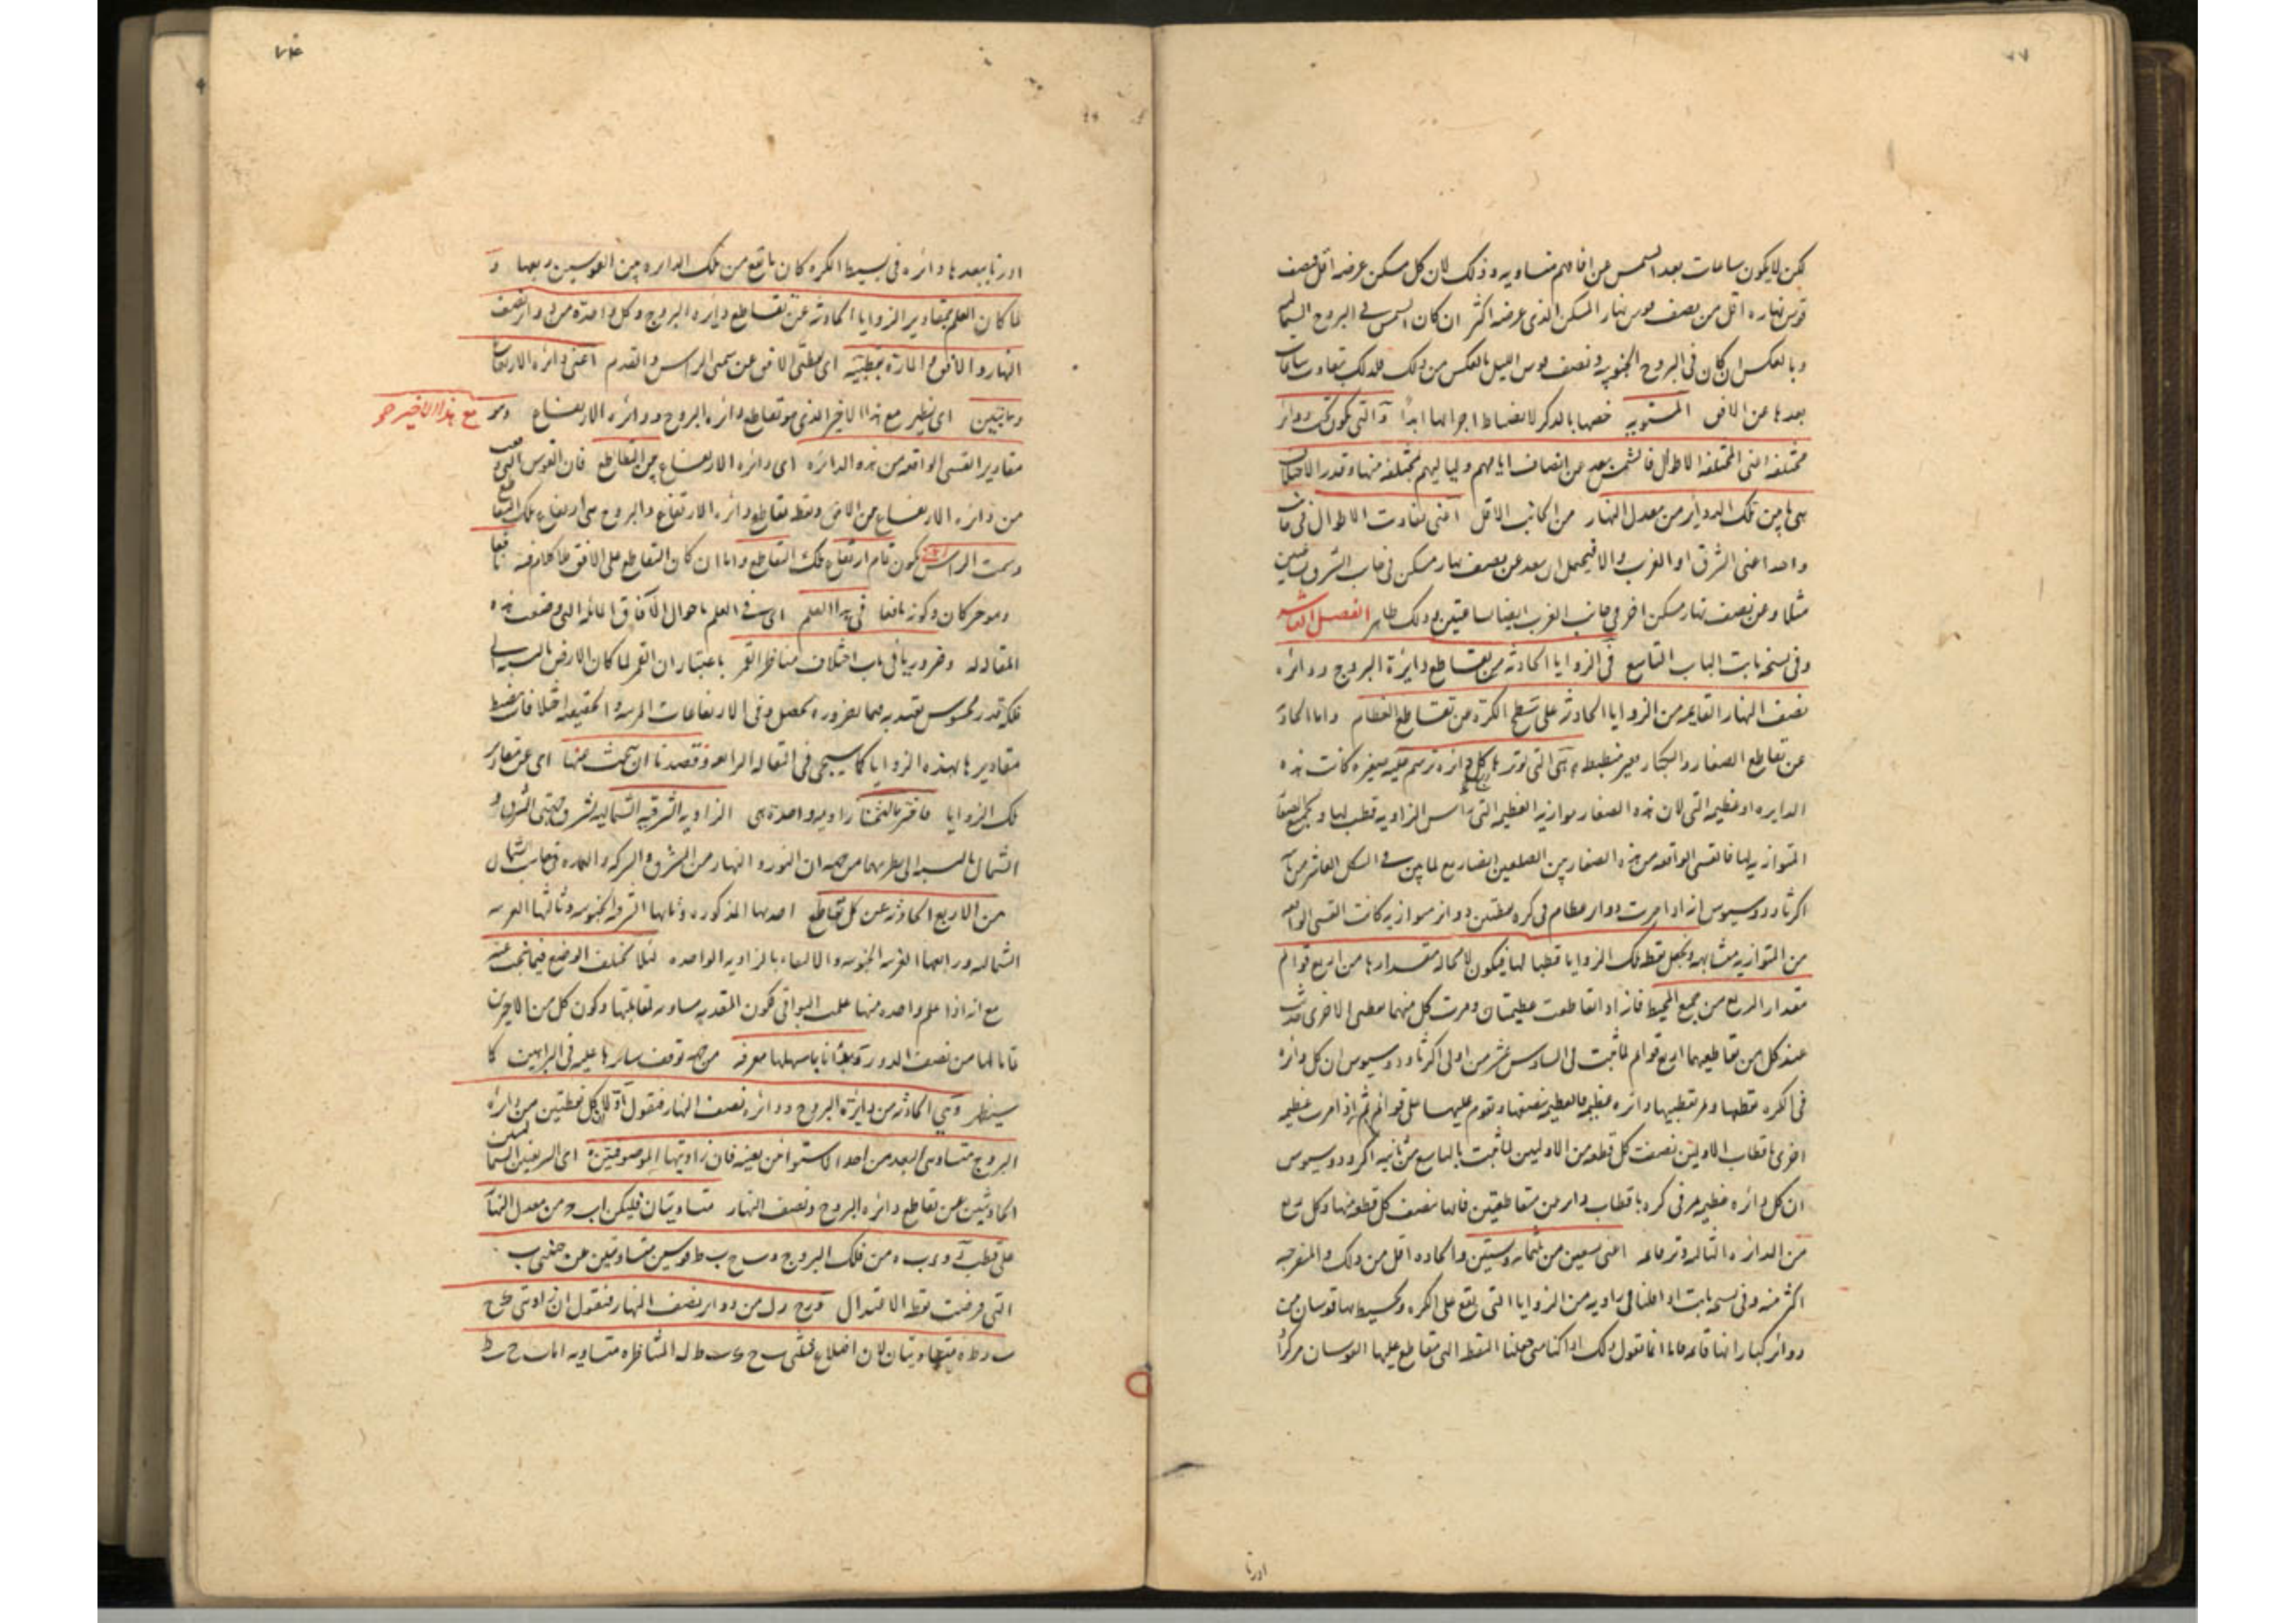 لكن لا يكون ساعات بعد الشمس عن افاقهم متساويه وذلك لان كل مسكن عرضه اقل فنصف
قوس نهاره اقل من نصف قوس نهار المسكن الذى عرضه اكثر ان كان الشمس فى البروج الشماليه
وبالعكس ان كان فى البروج الجنوبيه ونصف قوس الليل بالعكس من ذلك فلذلك تتفاوت ساعات
بعدها عن الافق المستويه خصها بالذكر لانضباط اجزائها ابدا والتى يكون تحت دوائر
مختلفه اعنى المختلفة الاطوال فالشمس يبعد عن انصاف ايامهم ولياليهم مختلفه منها وقدر الاختلاف
هى ما بين تلك الدوائر من معدل النهار من الجانب الاقل اعنى تفاوت الاطوال فى جانب
واحد اعنى الشرق او الغرب والا فيحتمل ان يبعد عن نصف نهار مسكن فى جانب الشرق ساعتين
مثلا وعن نصف نهار مسكن اخر فى جانب الغرب ايضا ساعتين وذلك ظاهر الفصل العاشر
وفى نسخة ثابت الباب التاسع فى الزوايا الحادثة من تقاطع دايرة البروج ودائره
نصف النهار القايمه من الزوايا الحادثه على سطح الكرة من تقاطع العظام واما الحادثة
عن تقاطع الصغار والكبار فغير منضبطه هى التى توترها كل دائره ترسم عليه صغيره كانت هذه
الدايره او عظيمه التى لان هذه الصغار موازيه للعظيمه التى راس الزاويه قطب لها ولجميع الصغار
المتوازيه لها فالقسى الواقعه من هذه الصغار بين الضلعين ايضا ربع لما بين فى الشكل العاشر من ثانيه
اكر ثاودوسيوس انه اذا مرت دوائر عظام فى كره بقطبى دوائر متوازيه كانت القسى الواقعه
من المتوازيه متشابهه ويجعل نقطه تلك الزوايا قطبا لها فيكون لا محاله مقدارها من اربع قوائم
مقدار الربع من جميع المحيط فانه اذا تقاطعت عظيمتان ومرت كل منهما بقطبى الاخرى حدثت
عند كل من تقاطعيهما اربع قوائم لما ثبت فى السادس عشر من اولى اكر ثاودوسيوس ان كل دائره
فى الكره تقطعها وتمر بقطبيها دائره عظيمه فالعظيمه تنصفها وتقوم عليها على قوائم ثم اذا مرت عظيمه
اخرى باقطاب الاوليين نصفت كل قطعه من الاوليين لما ثبت بالتاسع من ثانيه اكر ثاودوسيوس
ان كل دائره عظيمه تمر فى كره باقطاب دائرتين متقاطعتين فانها تنصف كل قطعه منها وكل ربع
من الدائره الثالثه وتر قائمه اعنى تسعين من ثلثمائه وستين والحاده اقل من ذلك والمنفرجه
اكثر منه وفى نسخة ثابت اذا قلنا فى زاويه من الزوايا التى تقع على الكره ويحيط بها قوسان من
دوائر كبار انها قائمه فانا انما نقول ذلك اذا كنا متى جعلنا النقطه التى يتقاطع عليها القوسان مركزا
ادرنا
٧٤
ادرنا ببعدها دائره فى بسيط الكره كان ما يقع من تلك الدايره بين القوسين ربعها و
لما كان العلم بمقادير الزوايا الحادثة عن تقاطع دايره البروج وكل واحدة من دوائر نصف
النهار والافق والمارة بقطبيه اى بقطبى الافق عن سمتى الراس والقدم اعنى دائره الارتفاع
وما يتبين اى يظهر مع هذا الاخير الذى هو تقاطع دائره البروج ودائره الارتفاع وهو
مع هذا الاخير هو
مقادير القسى الواقعه من هذه الدائره اى دائره الارتفاع بين التقاطع فان القوس التى
من دائره الارتفاع بين الافق ونقطة تقاطع دائره الارتفاع والبروج هى ارتفاع تلك التقاطع
وسمت الراس يكون تمام ارتفاع تلك التقاطع واما ان كان التقاطع على الافق فلا كلام فيه نافعا
وهو خبر كان وكونه نافعا فى هذا العلم اى فى العلم باحوال الآفاق المائله التى وضعت هذه
المقاله له وضروريا فى باب اختلاف مناظر القمر باعتبار ان القمر لما كان الارض بالنسبه الى
فلكه قدر محسوس يعتد به فبالضروره يحصل فى الارتفاعات المرئيه والحقيقيه اختلافات يضبط
مقاديرها بهذه الزوايا كما سيجى فى المقاله الرابعه وقصدنا ان نبحث عنها اى عن مقادير
تلك الزوايا زاويه واحدة هى الزاويه الشرقيه الشماليه لشرف جهتى الشرق و
الشمال بالنسبه الى نظيريهما من جهه ان النور والنهار من الشرق والعماره فى جانب الشمال
من الاربع الحادثه عن كل تقاطع احدها المذكوره وثانيها الشرقيه الجنوبيه وثالثها الغربيه
الشماليه ورابعها الغربيه الجنوبيه والاكتفاء بالزاويه الواحده لئلا يختلف الوضع فيما نبحث عنه
مع انه اذا علم واحده منها علمت البواقى لكون المقدره مساويه لمقابلتها وكون كل من الاخرين
تماما لها من نصف الدور وبدانا باسهلها معرفه من جهه توقف سايرها عليه فى البراهين كما
سيظهر وهى الحادثة من دايرة البروج ودائره نصف النهار فنقول اولا كل نقطتين من دائره
البروج متساوى البعد من احد الاستوائين بعينه فان زاويتيهما الموصوفتين اى الشرقيتين الشماليتين
الحادثتين عن تقاطع دائره البروج ونصف النهار متساويتان فليكن اب ح من معدل النهار
على قطب ر و ء ب ه من فلك البروج و ب ح ب ط قوسين متساويتين عن جنبى ب
التى فرضت نقطة الاعتدال و ر ح ر ل من دوائر نصف النهار فنقول ان زاويتى
متساويتان لان اضلاع مثلثى ب ح ك ب ط ل المتناظره متساويه اما ب ح ب ط